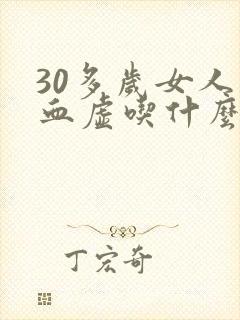 30多歲女人
血虛喫什麼
丁宏奇